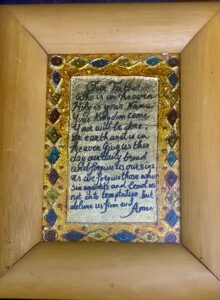 Our Father
Who is in heaven
Holy is your Name
Your Kingdom come
Your will be done,
on earth and is in
heaven Give us this
day our daily bread
and forgive us our sins
as we forgive those who
sin against us and lead us
not into temptation but
deliver us from evil
Amen